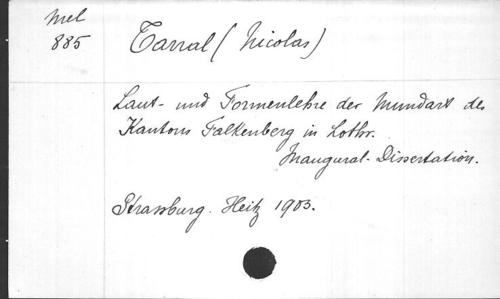 Mel
885
Tarral (Nicolas)
Laut- und Formenlehre der Mundart des
Kantons Falkenberg in Lothr.
Inaugural-Dissertation.
Strassburg. Heitz 1903.